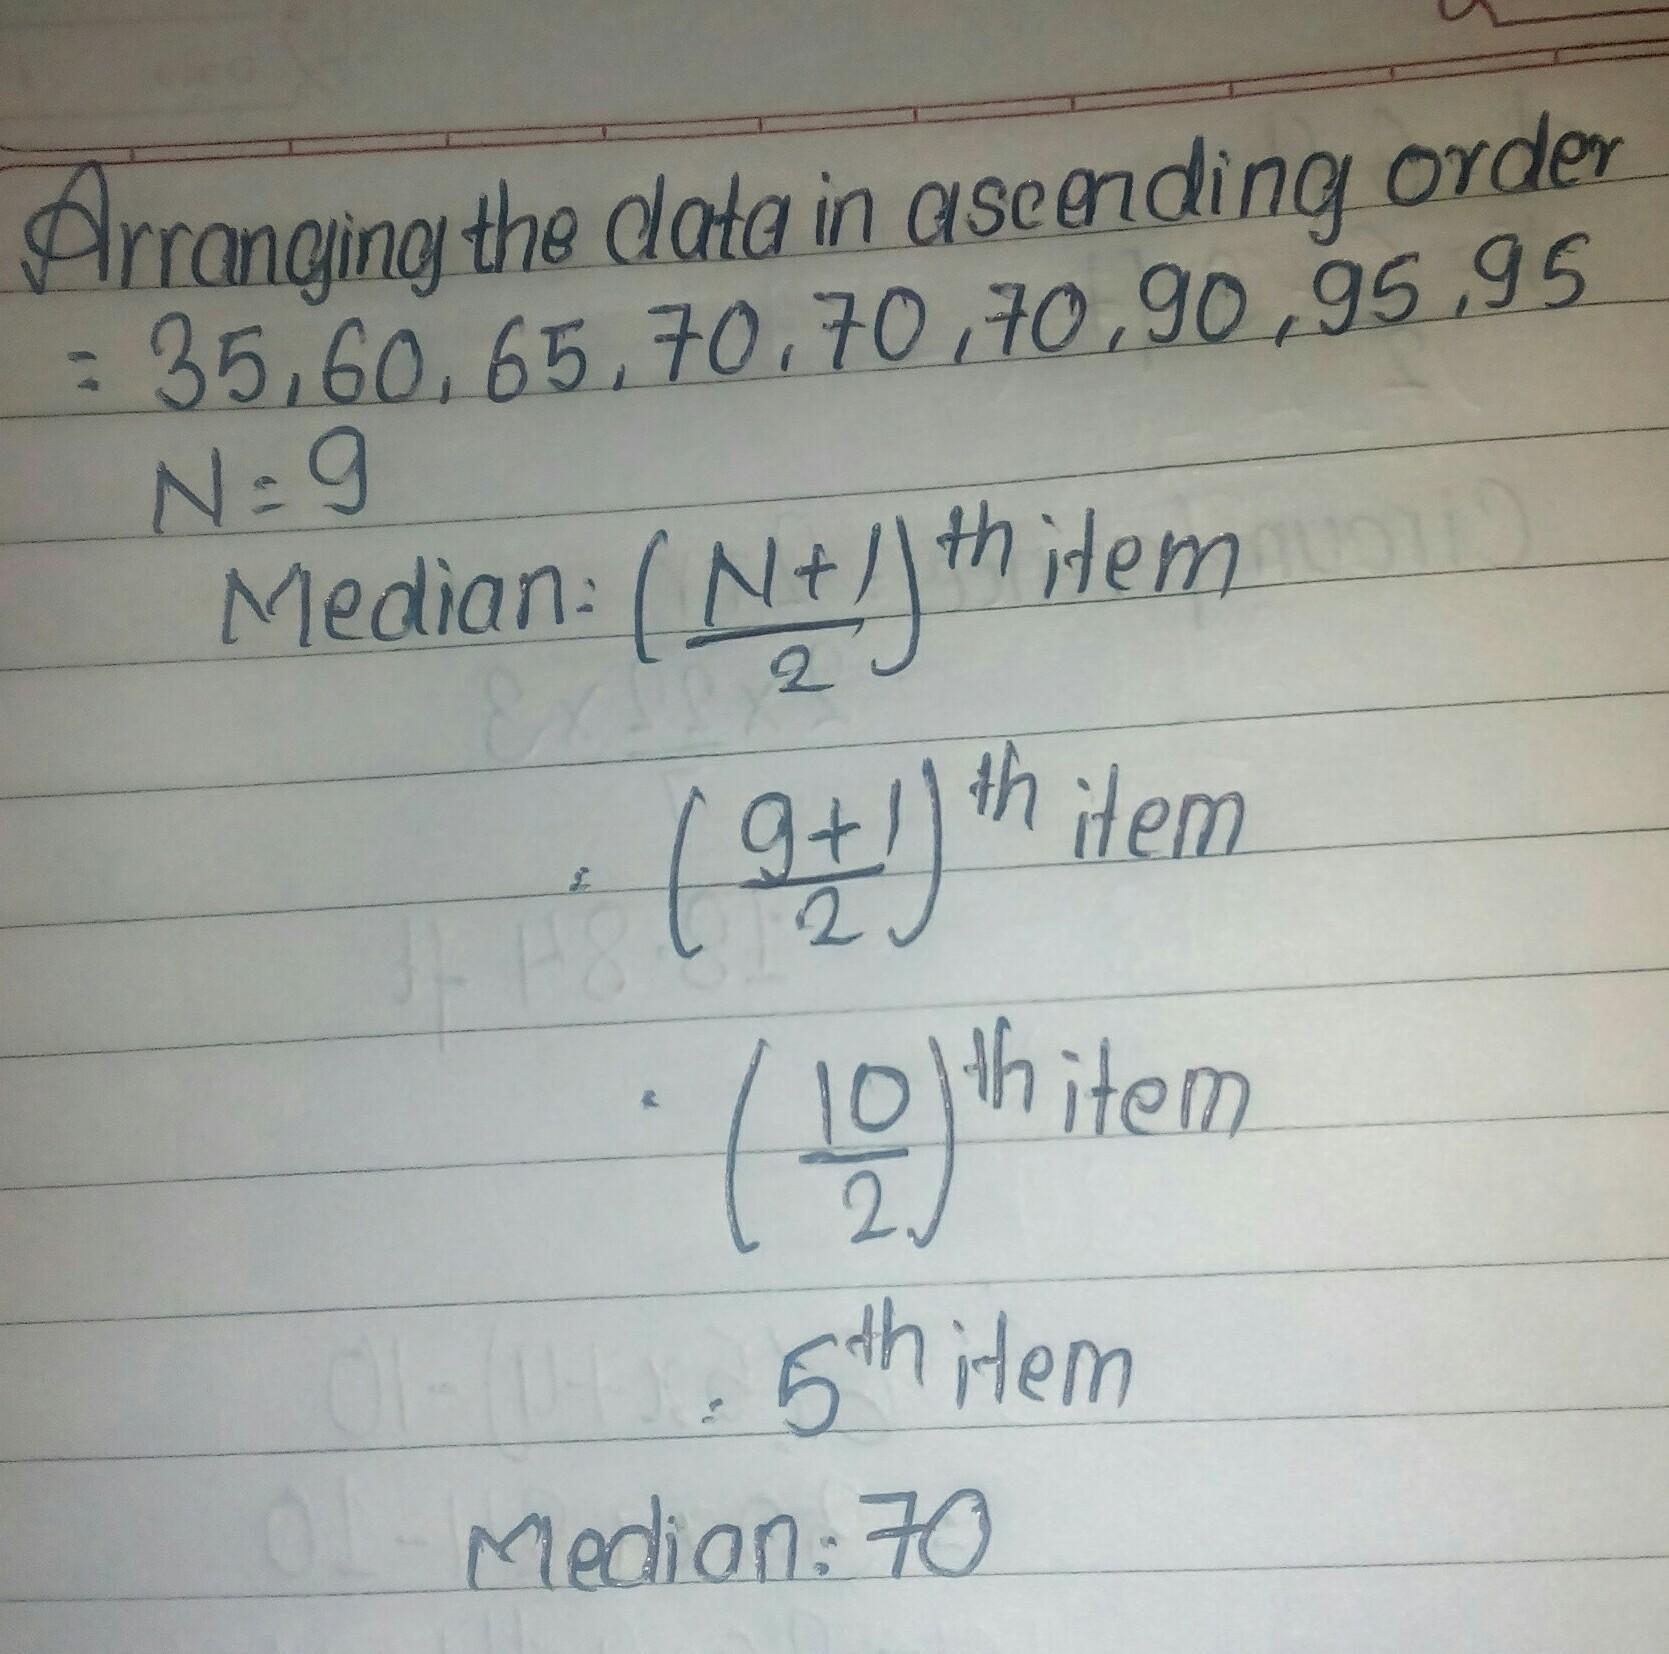 Arranging the data in ascending order
= 35, 60, 65, 70, 70, 70, 90, 95, 95
N = 9
Median = (N+1/2)th item
= (9+1/2)th item
= (10/2)th item
= 5th item
Median = 70